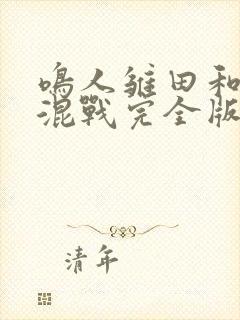 鳴人雏田和
混戰完全版
清年